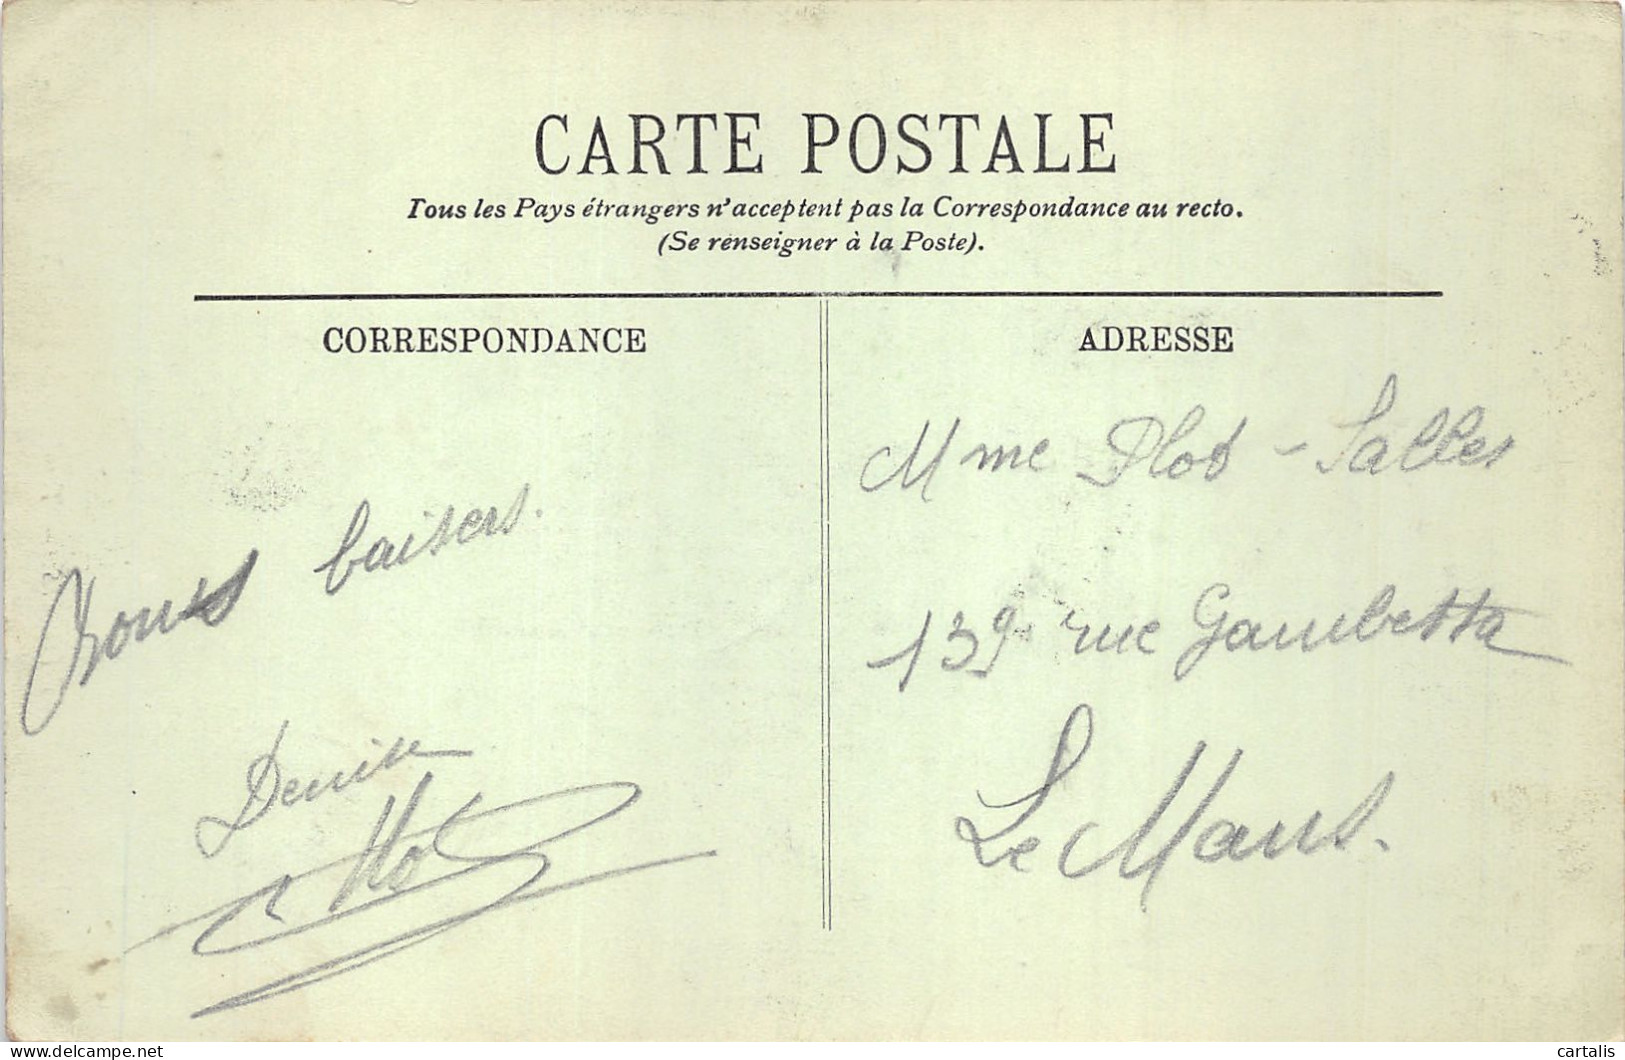 CARTE POSTALE
Tous les Pays étrangers n'acceptent pas la Correspondance au recto.
(Se renseigner à la Poste).
CORRESPONDANCE
ADRESSE
baisers.
Denise
Mme Plot - Salles
139 rue Gambetta
Le Mans.
delcampe.net
cartalis